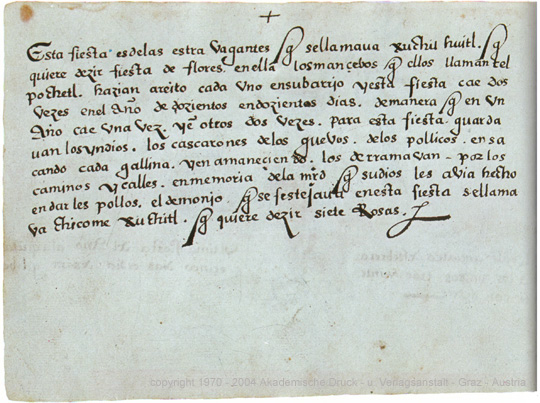 +
Esta fiesta es delas estra vagantes q̃ sellamava xuchil huitl. q̃
quiere dezir fiesta de flores. en ella los mançebos q̃ ellos llaman tel
pochetl. hazian areito cada vno ensubarrio yesta fiesta cae dos
vezes enel Año de dozientos endozientos dias. demanera q̃ en vn
Año cae vna vez. yẽ otros dos vezes. para esta fiesta guarda
uan los yndios. los cascarones delos guevos. delos pollicos. en sa
cando cada gallina. y en amaneciendo. los derramavan - por los
caminos y calles. en memoria dela mrd q̃ sudios les avia hecho
en darles pollos. el demonjo. q̃ se festejaua enesta fiesta sellama
va chicome xuchitl. q̃ quiere dezir siete Rosas.
copyright 1970 - 2004 Akademische Druck - u. Verlagsanstalt - Graz - Austria